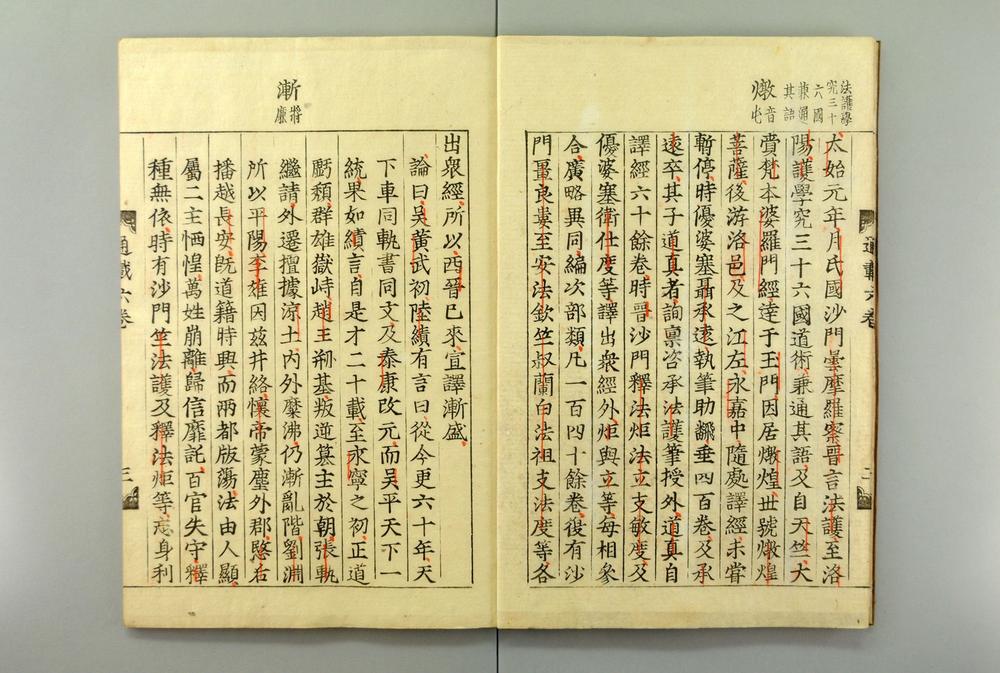 法護學
究三十
六國
兼通
其語
燉音
屯
太始元年月氏國沙門曇摩羅察晉言法護至洛
陽護學究三十六國道術兼通其語及自天竺大
賷梵本婆羅門經達于玉門因居燉煌世號燉煌
菩薩後游洛邑及之江左永嘉中隨處譯經未甞
暫停時優婆塞聶承遠執筆助飜垂四百卷及承
遠卒其子道真者詢禀咨承法護筆授外道真自
譯經六十餘卷時晉沙門釋法炬法立支敏度及
優婆塞衛仕度等譯出衆經外炬與立等每相參
合廣略異同編次部類凡一百四十餘卷復有沙
門畺良婁至安法欽竺叔蘭白法祖支法度等各
通載六卷
二
漸
將廉
出衆經所以西晉已來宣譯漸盛
論曰吴黃武初陸績有言曰從今更六十年天
下車同軌書同文及泰康改元而吴平天下一
統果如績言自是才二十載至永寧之初正道
虧頹群雄嶽峙趙王剏基叛逆篡主於朝張軌
繼請外遷擅據涼土内外糜沸仍漸亂階劉淵
所以平陽李雄因兹井絡懷帝蒙塵外郡愍后
播越長安旣道籍時興而兩都版蕩法由人顯
屬二主恓惶萬姓崩離歸信靡託百官失守釋
種無依時有沙門竺法護及釋法炬等忘身利
通載六卷
三